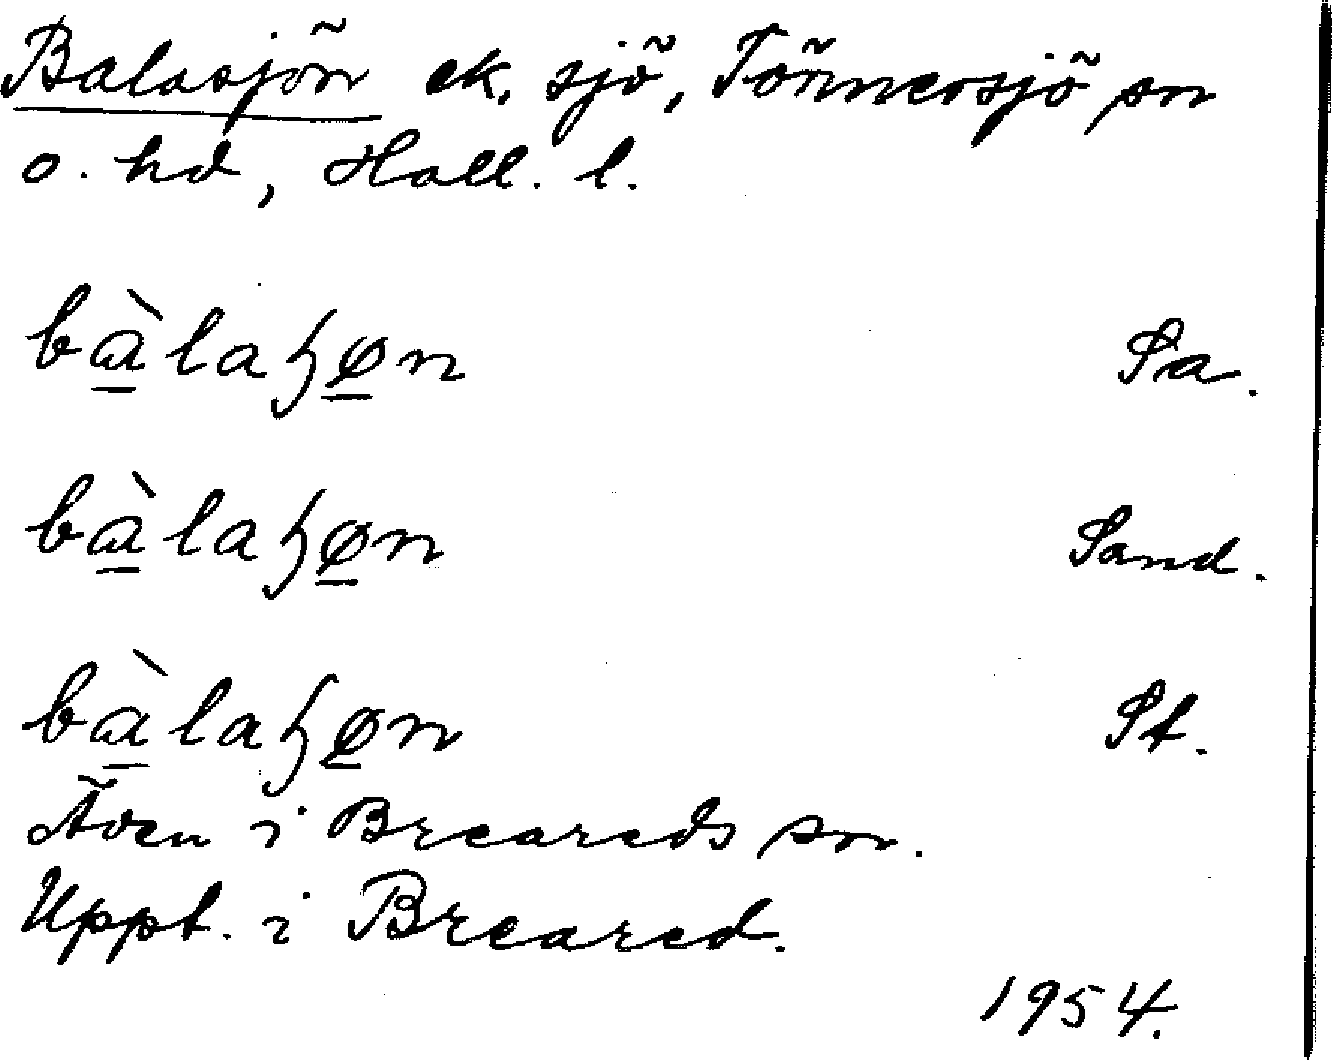 Balasjön ek. sjö, Tönnersjö sn
o. hd, Hall. l.
bàlaɧøn Sa.
bàlaɧøn Sand.
bàlaɧøn St.
Även i Breareds sn.
Uppt. i Breared.
1954.